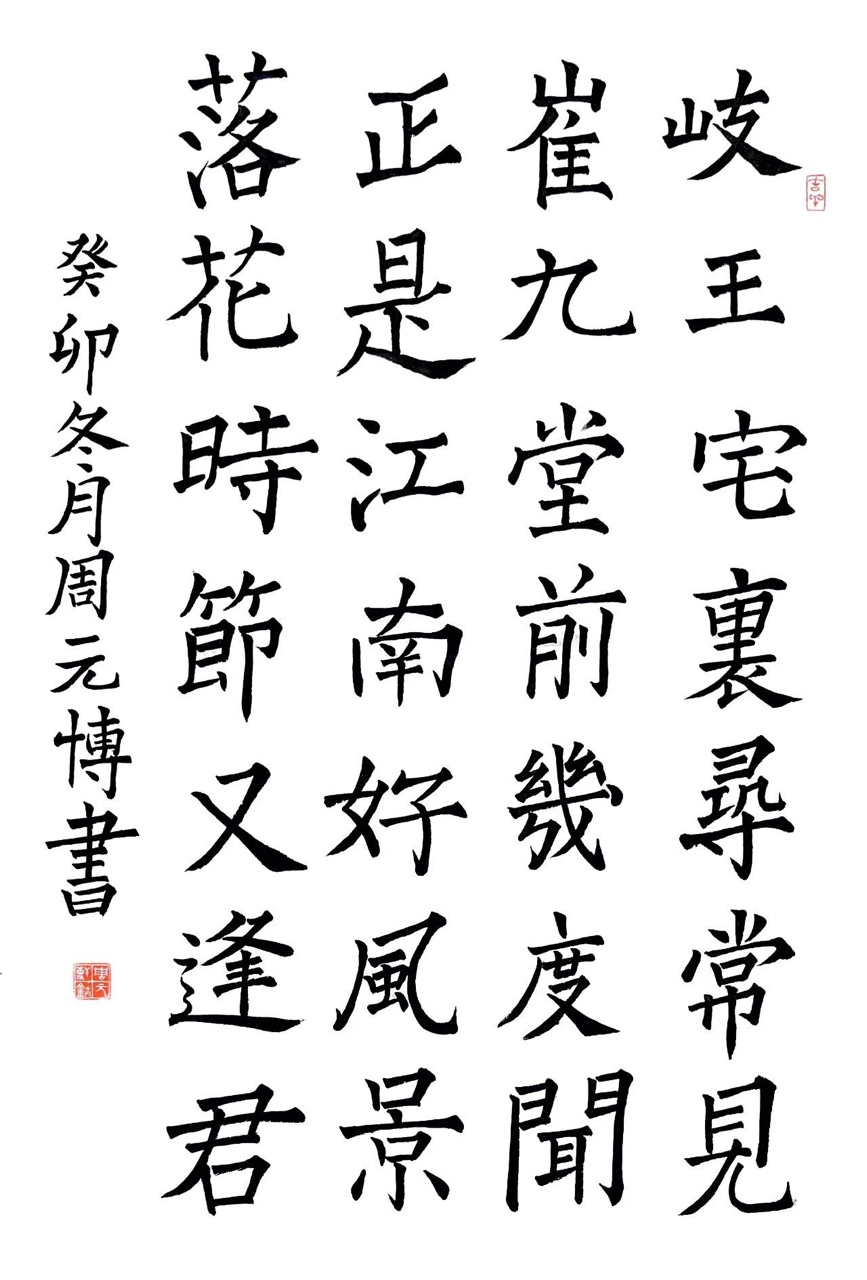 岐王宅裏尋常見
崔九堂前幾度聞
正是江南好風景
落花時節又逢君
癸卯冬月周元博書